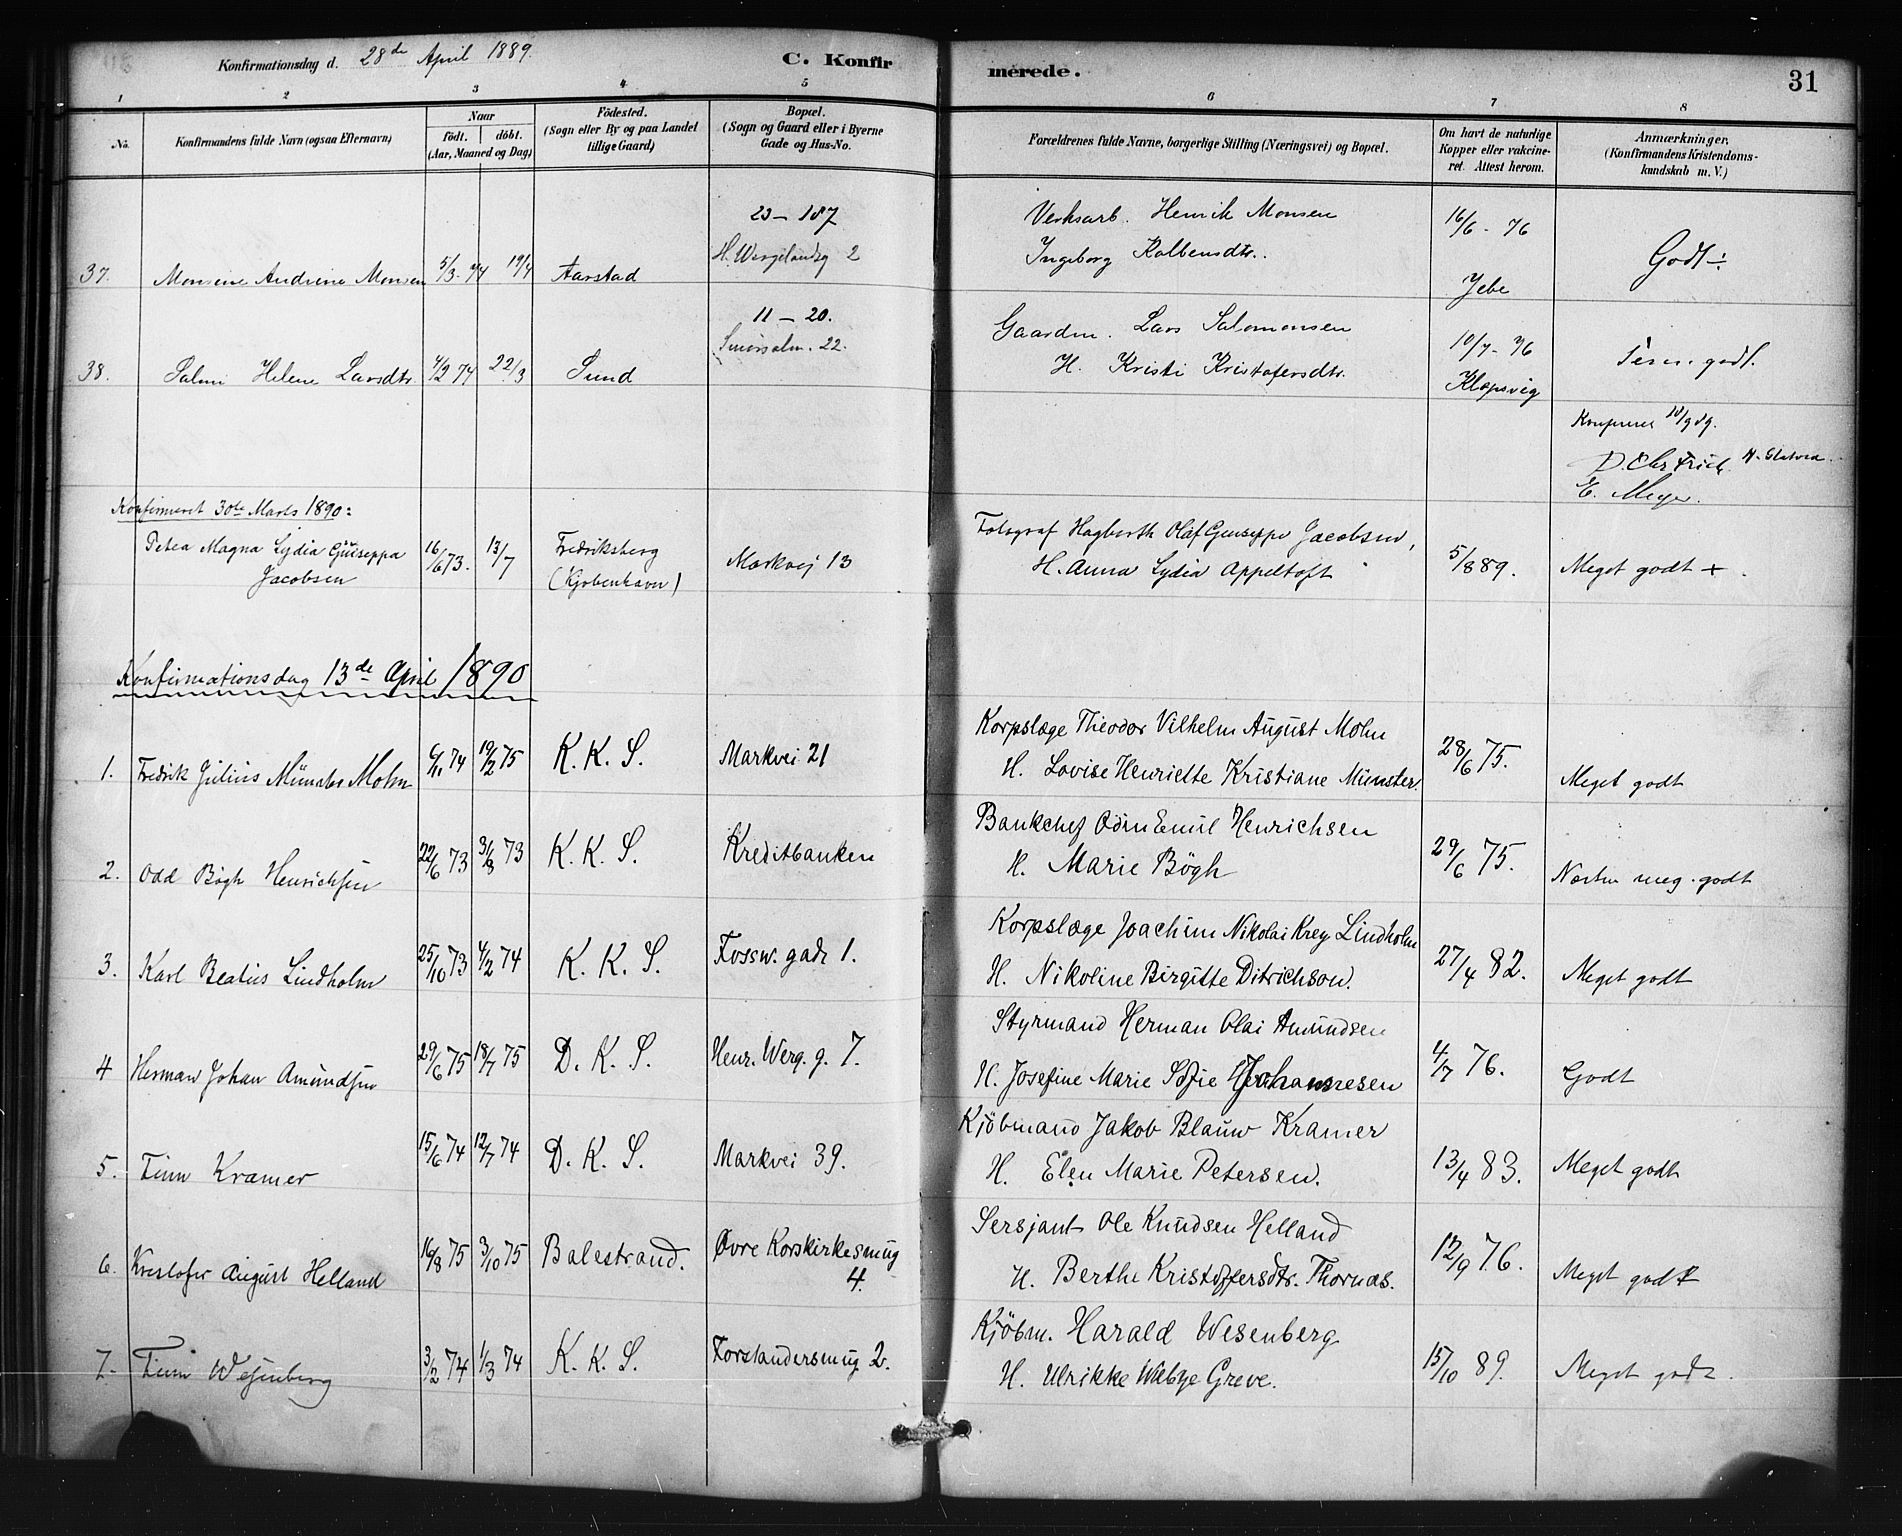 Konfirmationsdag d. 28de April 1889.
C. Konfirmerede.
31
1 2 3 4 5 6 7 8
No.
Konfirmandens fulde Navn (ogsaa Efternavn)
Naar
födt. döbt.
(Aar, Maaned og Dag)
Födested.
(Sogn eller By og paa Landet
tillige Gaard)
Bopæl.
(Sogn og Gaard eller i Byerne
Gade og Hus-No.
Forældrenes fulde Navne, borgerlige Stilling (Næringsvei) og Bopæl.
Om havt de naturlige
Kopper eller vakcine-
ret. Attest herom.
Anmærkninger.
(Konfirmandens Kristendoms-
kundskab m. V.)
23 - 187
Verksarb. Henrik Monsen
16/6 - 76
37. Monsine Andrine Monsen 5/3 - 74 19/4 Aarstad H. Wergelandsg 2
Ingeborg Kolbensdtr.
Jebe
Godt ÷
11 - 20.
Gaardm. Lars Salomonsen
10/7 - 76
38. Salmi Helene Larsdtr. 4/2 74 22/3 Sund Smörsalm. 22.
H. Kristi Kristofersdtr.
Klepsvig
Tem. godt.
E. Meyer.
Konfirmeret 30te Marts 1890:
Petea Magna Lydia Giuseppa
Jacobsen
16/6 73. 13/7
Fredriksberg
(Kjöbenhavn)
Markvej 13
Fotograf Hagbarth Olaf Giuseppe Jacobsen,
H. Anna Lydia Appeltoft
5/8 89.
Meget godt +
Konfirmationsdag 13de April 1890
1. Fredrik Julius Münster Mohn 6/11 74 19/2 75 K. K. S. Markvei 21
Korpslæge Theodor Vilhelm August Mohn
H. Lovise Henriette Kristiane Münster.
28/6 75.
Meget godt
2. Odd Bögh Henrichsen 22/6 73 31/8 73 K. K. S. Kreditbanken
Bankchef Odin Emil Henrichsen
H. Marie Bögh
29/6 75.
Næsten meg. godt
3. Karl Beatus Lindholm 25/10 73 4/2 74 K. K. S. Fossw. gade 1.
Korpslæge Joachim Nikolai Krey Lindholm
H. Nikoline Birgitte Ditrichson.
27/4 82.
Meget godt
4 Herman Johan Amundsen 29/6 75 18/7 75 D. K. S. Henr. Werg. g. 7.
Styrmand Herman Olai Amundsen
H. Josefine Marie Sofie Johannesen
4/7 76.
Godt
5. Finn Kramer 15/6 74 12/7 74 D. K. S. Markvei 39.
Kjöbmand Jakob Blauw Kramer
H. Elen Marie Petersen.
13/4 83.
Meget godt
6. Kristofer August Helland 16/8 75 3/10 75 Balestrand. Øvre Korskirkesmug
4.
Sersjant Ole Knudsen Helland
H. Berthe Kristoffersdtr. Thornæs.
12/9 76.
Meget godt
7. Finn Wesenberg 3/2 74 1/3 74 K. K. S. Forstandersmug 2.
Kjöbm. Harald Wesenberg
H. Ulrikke Wibye Greve.
15/10 89.
Meget godt.